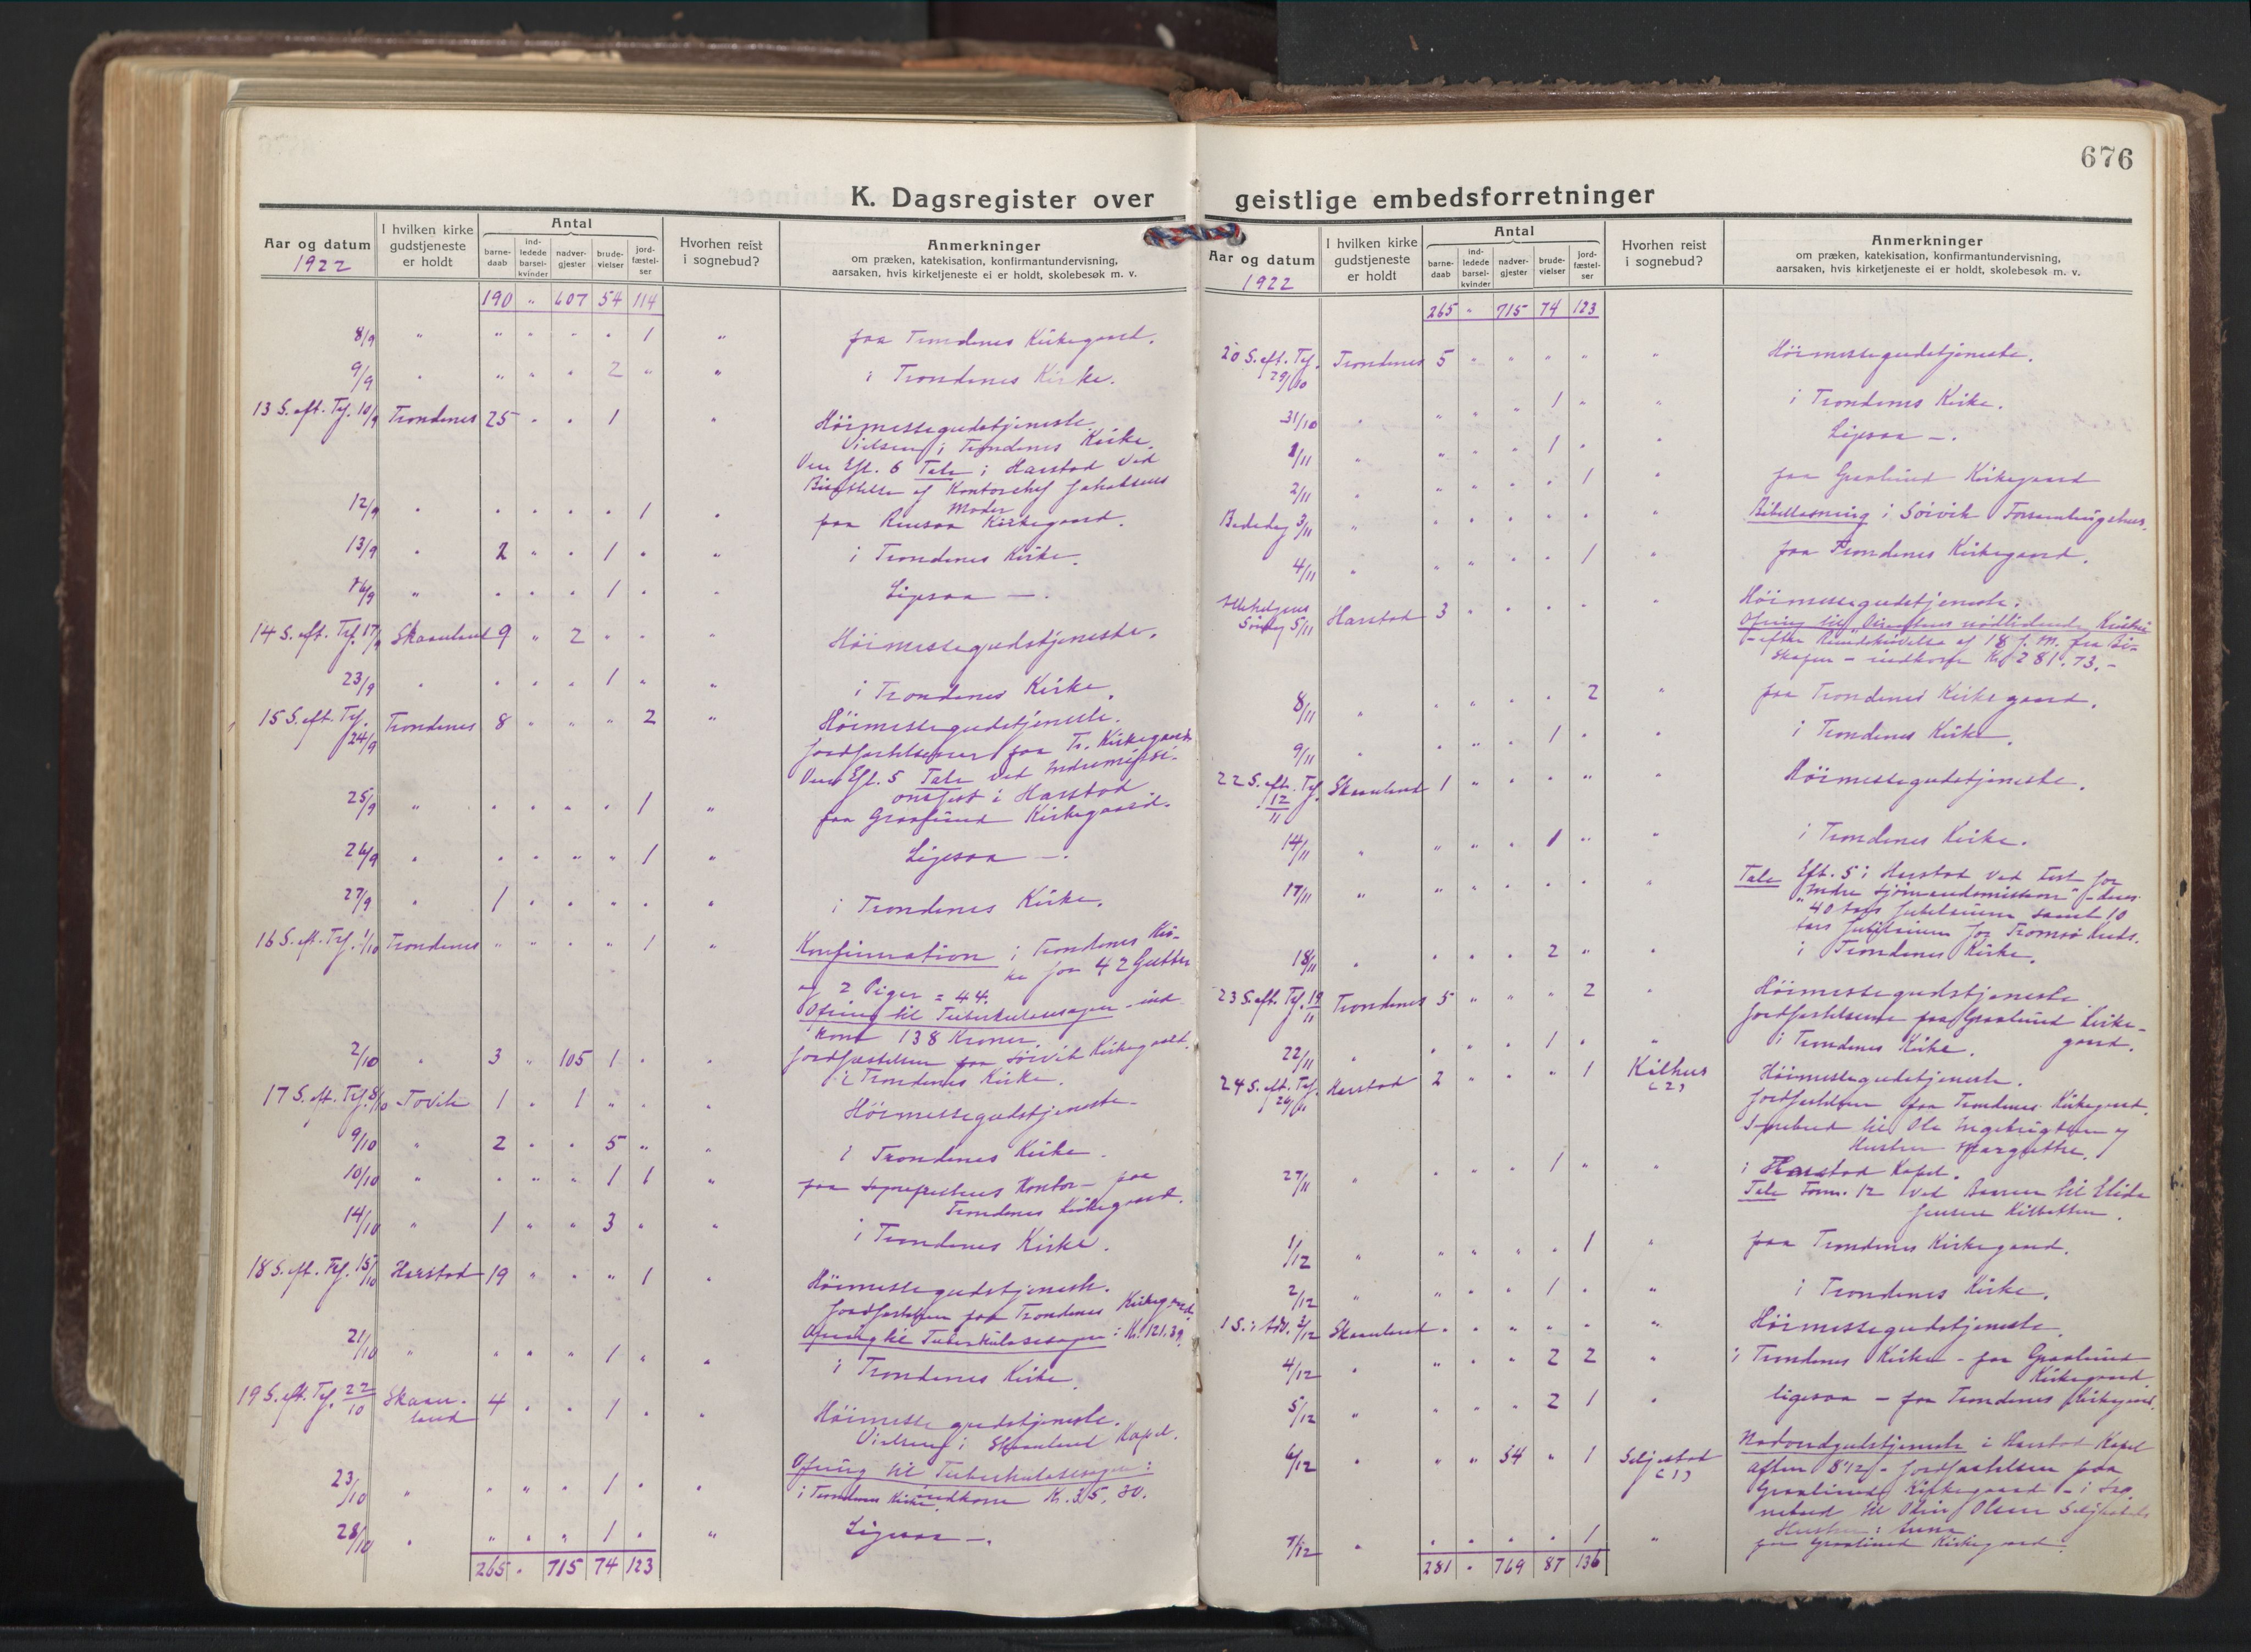 676
K. Dagsregister over geistlige embedsforretninger
Aar og datum
1922
I hvilken kirke gudstjeneste er holdt
Antal
barne-daab
ind-ledede barsel-kvinder
nadver-gjester
brude-vielser
jord-fæstel-ser
Hvorhen reist i sognebud?
Anmerkninger
om præken, katekisation, konfirmantundervisning,
aarsaken, hvis kirketjeneste ei er holdt, skolebesøk m. v.
190 " 607 54 114
8/9 " " " " " 1 " paa Trondenes Kirkegaard.
9/9 " " " " 2 " " i Trondenes Kirke.
13 S. eft. Tref. 10/9 Trondenes 25 " " 1 " Höimessegudstjeneste
Vielsen i Trondenes Kirke
Tale i Harstad ved
Kontorchef Jakobsens
Moder
12/9 " " " " " 1 " paa Kirkegaard.
13/9 " 2 " " 1 " " i Trondenes Kirke.
16/9 " " " " 1 " " Ligesaa —.
14 S. eft. Tref. 17/9 Skaanland 9 " 2 " " " Höimessegudstjeneste.
23/9 " " " " 1 " " i Trondenes Kirke.
15 S. eft. Tref. 24/9 Trondenes 8 " " " 2 " Höimessegudstjeneste.
Jordfæstelserne paa Tr. Kirkegaard
Eft. 5 Tale ved Indremissi-
onsfest i Harstad
25/9 " " " " " 1 " paa Graalund Kirkegaard.
26/9 " " " " " 1 " Ligesaa —.
27/9 " 1 " " " " " i Trondenes Kirke.
16 S. eft. Tref. 1/10 Trondenes " " " " 1 " Konfirmation i Trondenes Kir-
ke for 42 Gutter
og 2 Piger = 44.
Ofring til Tuberkulosesagen ind
kom 138 Kroner.
Jordfæstelsen paa Sørvik Kirkegaard.
2/10 " 3 " 105 1 " " i Trondenes Kirke.
17 S. eft. Tref. 8/10 Tovik 1 " 1 " " " Höimessegudstjeneste
9/10 " 2 " " 5 " " i Trondenes Kirke.
10/10 " " " " 1 1 " paa Sogneprestens Kontor – paa
Trondenes Kirkegaard.
14/10 " 1 " " 3 " " i Trondenes Kirke.
18 S. eft. Tref. 15/10 Harstad 19 " " " 1 " Höimessegudstjeneste.
Jordfæstelsen paa Trondenes Kirkegaard.
Ofring til Tuberkulosesagen: Kr. 121.39.
21/10 " " " " 1 " " i Trondenes Kirke.
19 S. eft. Tref. 22/10 Skaan-
land 4 " " 1 " " Höimessegudstjeneste.
Vielsen i Skaanland Kapel.
Ofring til Tuberkulosesagen:
indkom Kr. 35,30.
23/10 " " " " 1 " " i Trondenes Kirke.
28/10 " " " " 1 " " Ligesaa —.
265 " 715 74 123
Aar og datum
1922
I hvilken kirke gudstjeneste er holdt
Antal
barne-daab
ind-ledede barsel-kvinder
nadver-gjester
brude-vielser
jord-fæstel-ser
Hvorhen reist i sognebud?
Anmerkninger
om præken, katekisation, konfirmantundervisning,
aarsaken, hvis kirketjeneste ei er holdt, skolebesøk m. v.
265 " 715 74 123
20 S. eft. Tref. 29/10 Trondenes 5 " " " " " Höimessegudstjeneste.
31/10 " " " " 1 " " i Trondenes Kirke.
1/11 " " " " 1 " " Ligesaa —.
2/11 " " " " " 1 " paa Graalund Kirkegaard
Bededag 3/11 " " " " " " " Bibellæsning i Sörvik Forsamlingshus.
4/11 " " " " " 1 " paa Trondenes Kirkegaard.
Allehelgens
Søndag 5/11 Harstad 3 " " " " " Höimessegudstjeneste.
Ofring til nödlidende Kristne
– efter Rundskrivelse af 18 f. M. fra Bi-
skopen – indkom Kr. 281.73.–
8/11 " " " " " 2 " paa Trondenes Kirkegaard.
9/11 " " " " 1 " " i Trondenes Kirke.
22 S. eft. Tref. 12/11 Skaanland 1 " " " " " Höimessegudstjeneste.
14/11 " " " " 1 " " i Trondenes Kirke.
17/11 " " " " " " " Tale Eft. 5 i Harstad ved Fest for
"Indre Sjömandsmission" – dens
40 aars Jubilæum samt 10
aars Jubilæum for Tromsö Kreds.
18/11 " " " " 2 " " i Trondenes Kirke.
23 S. eft. Tref. 19/11 Trondenes 5 " " " 2 " Höimessegudstjeneste
Jordfæstelserne paa Graalund Kirke-
gaard.
22/11 " " " " 1 " " i Trondenes Kirke.
24 S. eft. Tref. 26/11 Harstad 2 " " " 1 Kilhus
(2) Höimessegudstjeneste.
Jordfæstelsen paa Trondenes Kirkegaard.
Sognebud til Ole Ingebrigtsen og
Hustru Margrethe.
27/11 " " " " 1 " " i Harstad Kapel.
Tale Form. 12 ved Baaren til Elida
Jensen
1/12 " " " " " 1 " paa Trondenes Kirkegaard.
2/12 " " " " 1 " " i Trondenes Kirke.
1 S. i Adv. 3/12 Skaanland " " " " " " Höimessegudstjeneste.
4/12 " " " " 2 2 " i Trondenes Kirke – paa Graalund
Kirkegaard
5/12 " " " " 2 1 " ligesaa – paa Trondenes Kirkegaard.
6/12 " " " 54 " 1 Seljestad
(1) Nadverdgudstjeneste i Harstad Kapel
aften 8 1/2 – Jordfæstelsen paa
Graalund Kirkegaard – i Sog-
nebud til Olsen Seljestads
Hustru:
7/12 " " " " " 1 " paa Graalund Kirkegaard.
281 " 769 87 136